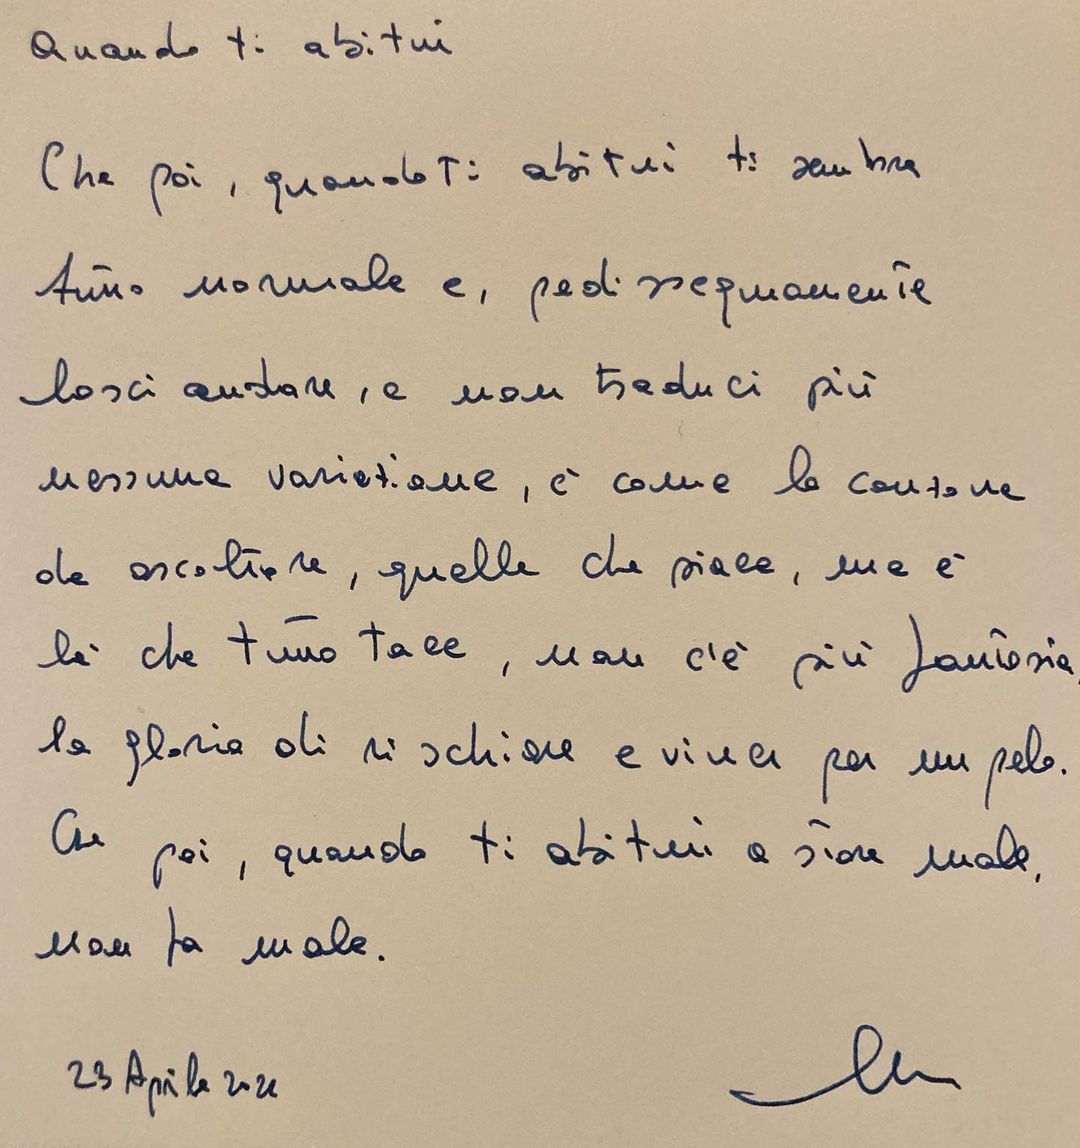 Quando ti abitui
Che poi, quando ti abitui ti sembra
tutto normale e, pedissequamente
lasci andare, e non traduci più
nessuna variazione, è come la canzone
da ascoltare, quella che piace, ma è
lì che tutto tace, non c'è più fantasia,
la gloria di rischiare e vincer per un pelo.
Che poi, quando ti abitui a stare male,
non fa male.
23 Aprile